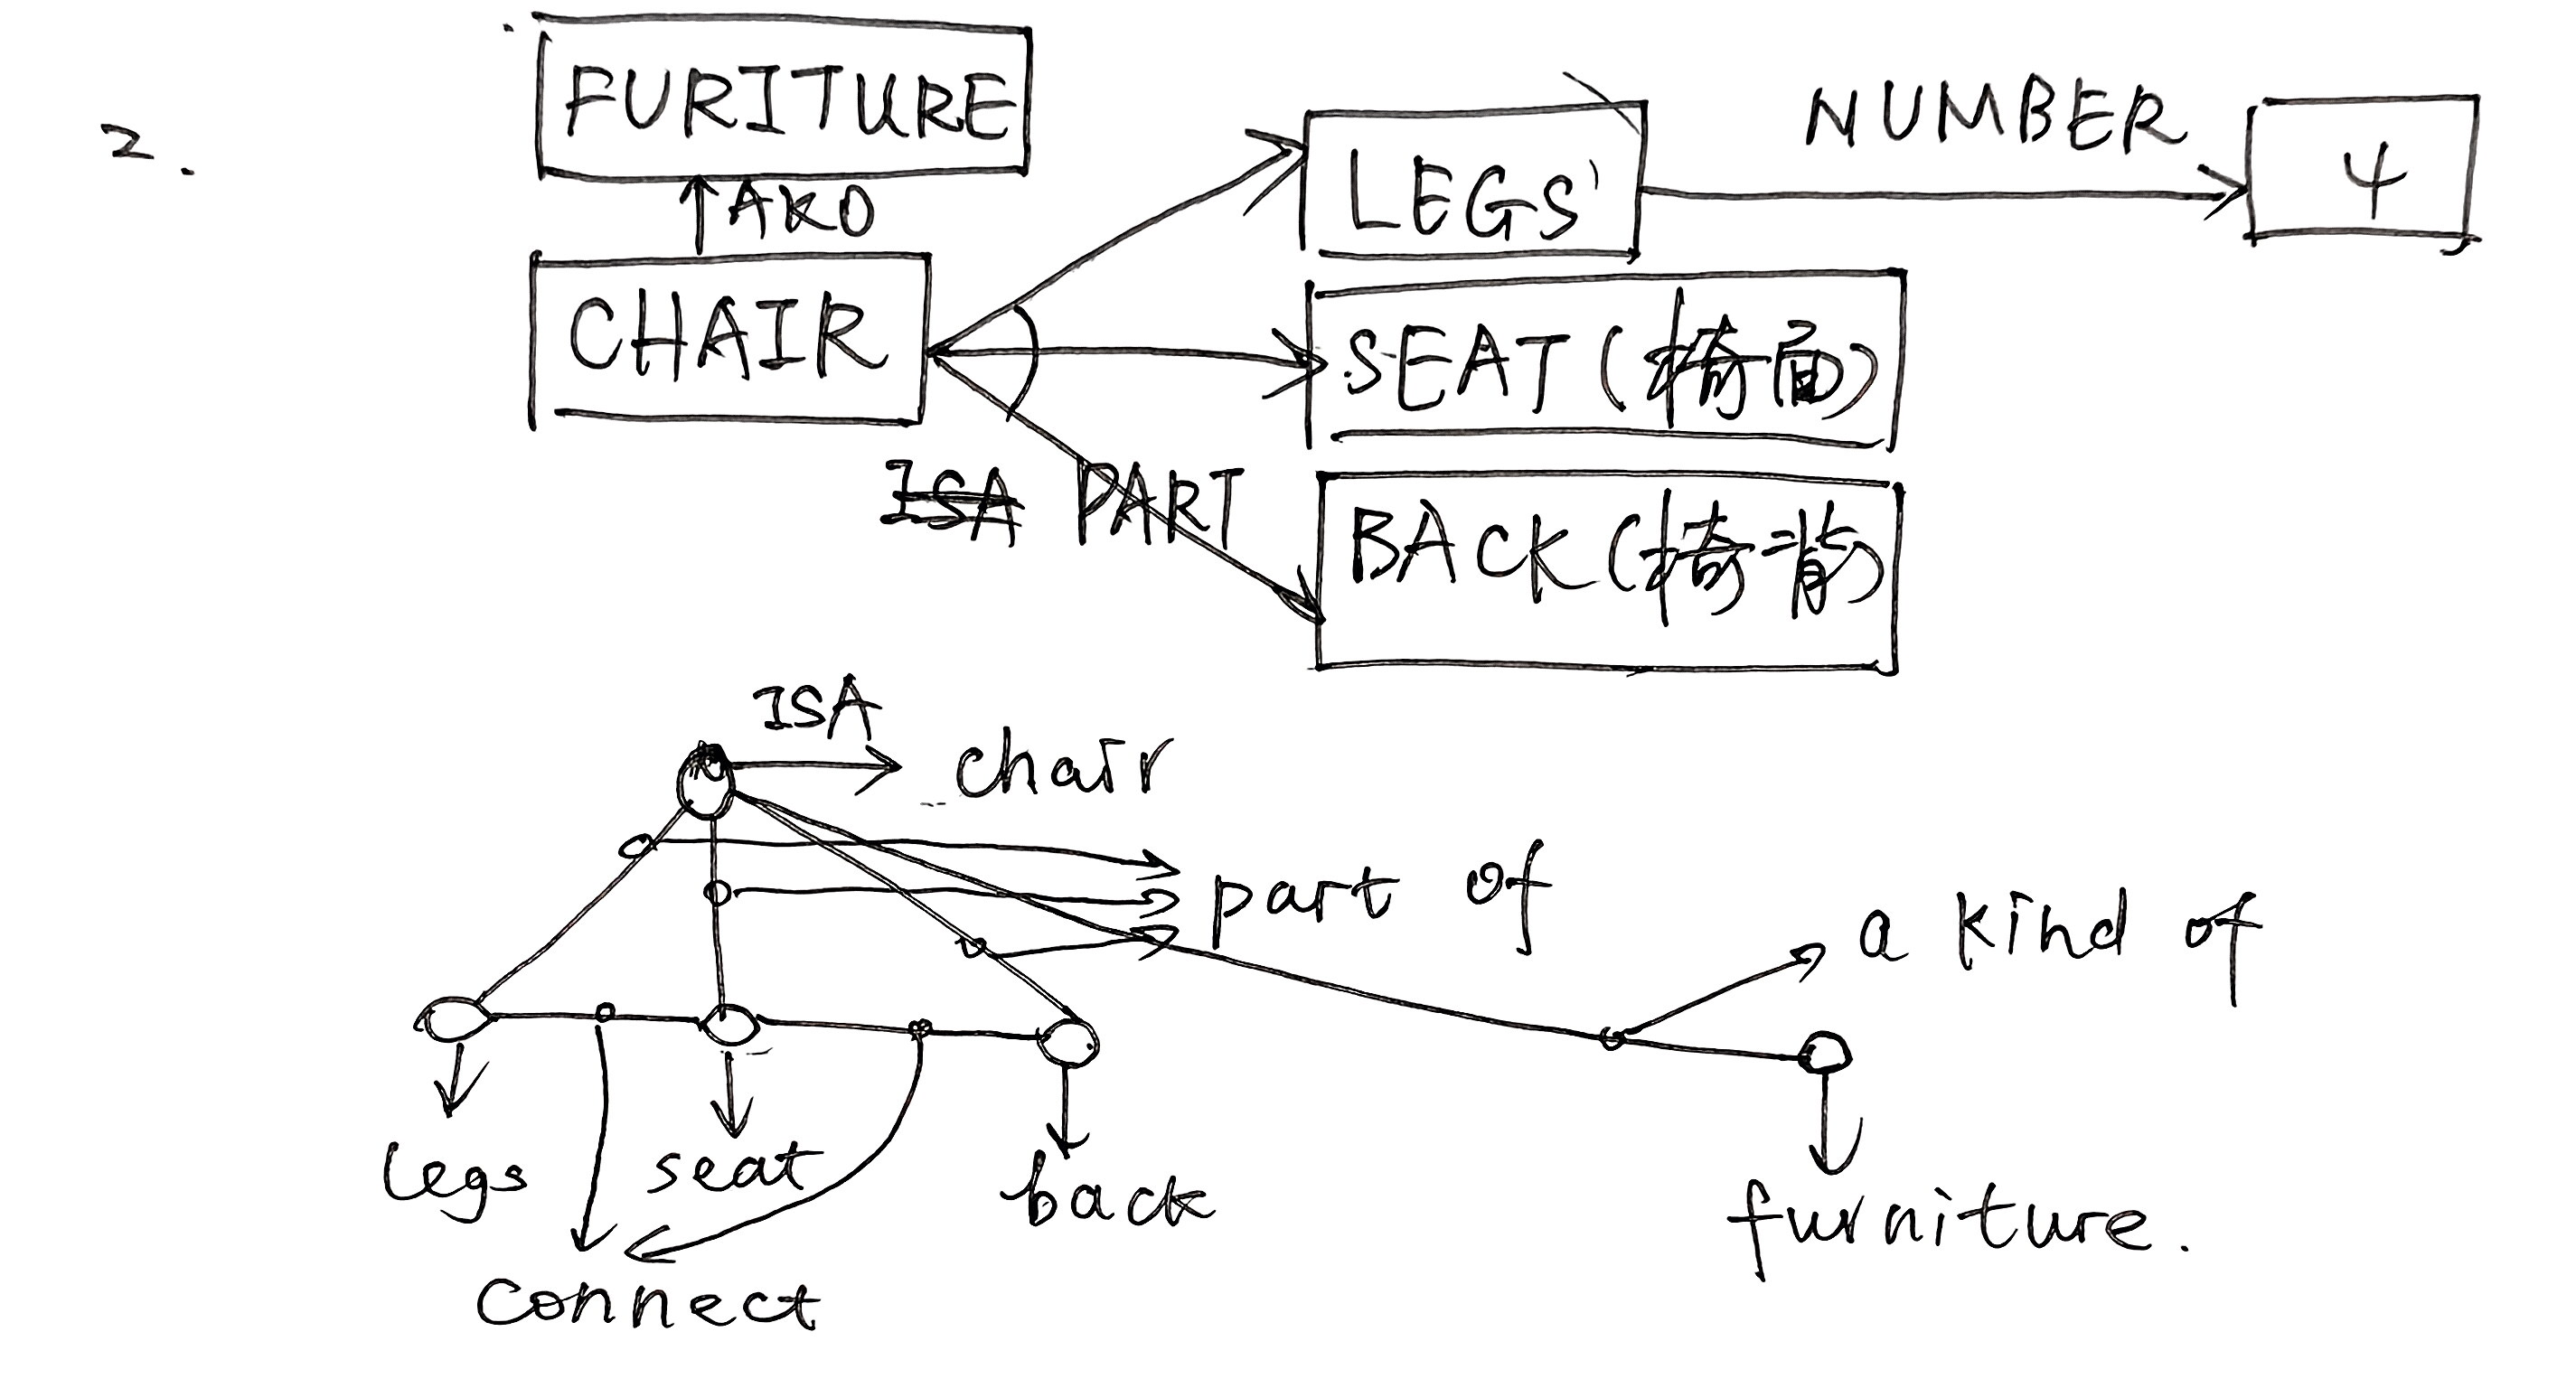 2.
FURITURE
AKO
CHAIR
LEGS
NUMBER
4
SEAT (椅面)
BACK (椅背)
ISA PART
ISA
chair
part of
a kind of
legs
seat
back
connect
furniture.